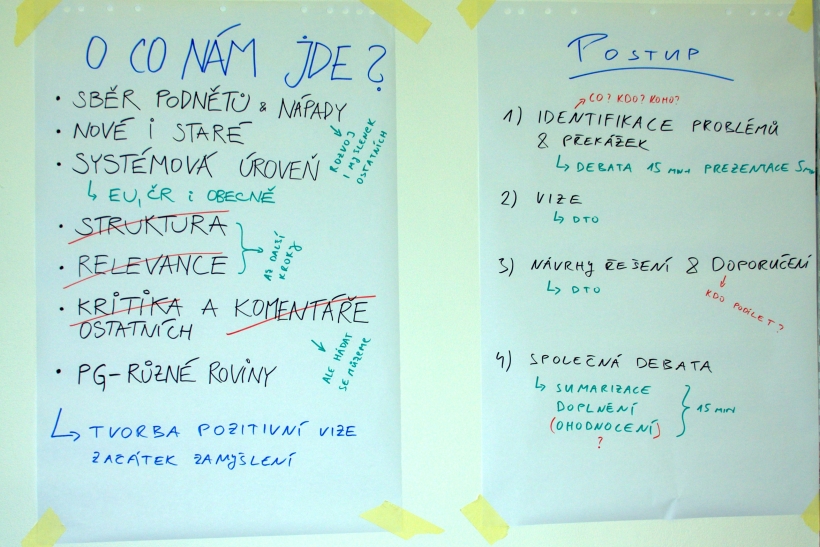 O CO NÁM JDE?
• SBĚR PODNĚTŮ & NÁPADY
ROZVOJ
I MYŠLENEK
OSTATNÍCH
• NOVÉ I STARÉ
• SYSTÉMOVÁ ÚROVEŇ
EU, ČR i OBECNĚ
• STRUKTURA
• RELEVANCE
AŽ DALŠÍ
KROKY
• KRITIKA A KOMENTÁŘE
OSTATNÍCH
ALE HÁDAT
SE MŮŽEME
• PG - RŮZNÉ ROVINY
TVORBA POZITIVNÍ VIZE
ZAČÁTEK ZAMYŠLENÍ
POSTUP
CO? KDO? KOMU?
1) IDENTIFIKACE PROBLÉMŮ
& PŘEKÁŽEK
DEBATA 15 MIN PREZENTACE 5 MIN
2) VIZE
DTO
3) NÁVRHY ŘEŠENÍ & DOPORUČENÍ
DTO
KDO PODÍLET?
4) SPOLEČNÁ DEBATA
SUMARIZACE
DOPLNĚNÍ
(OHODNOCENÍ)
?
15 MIN